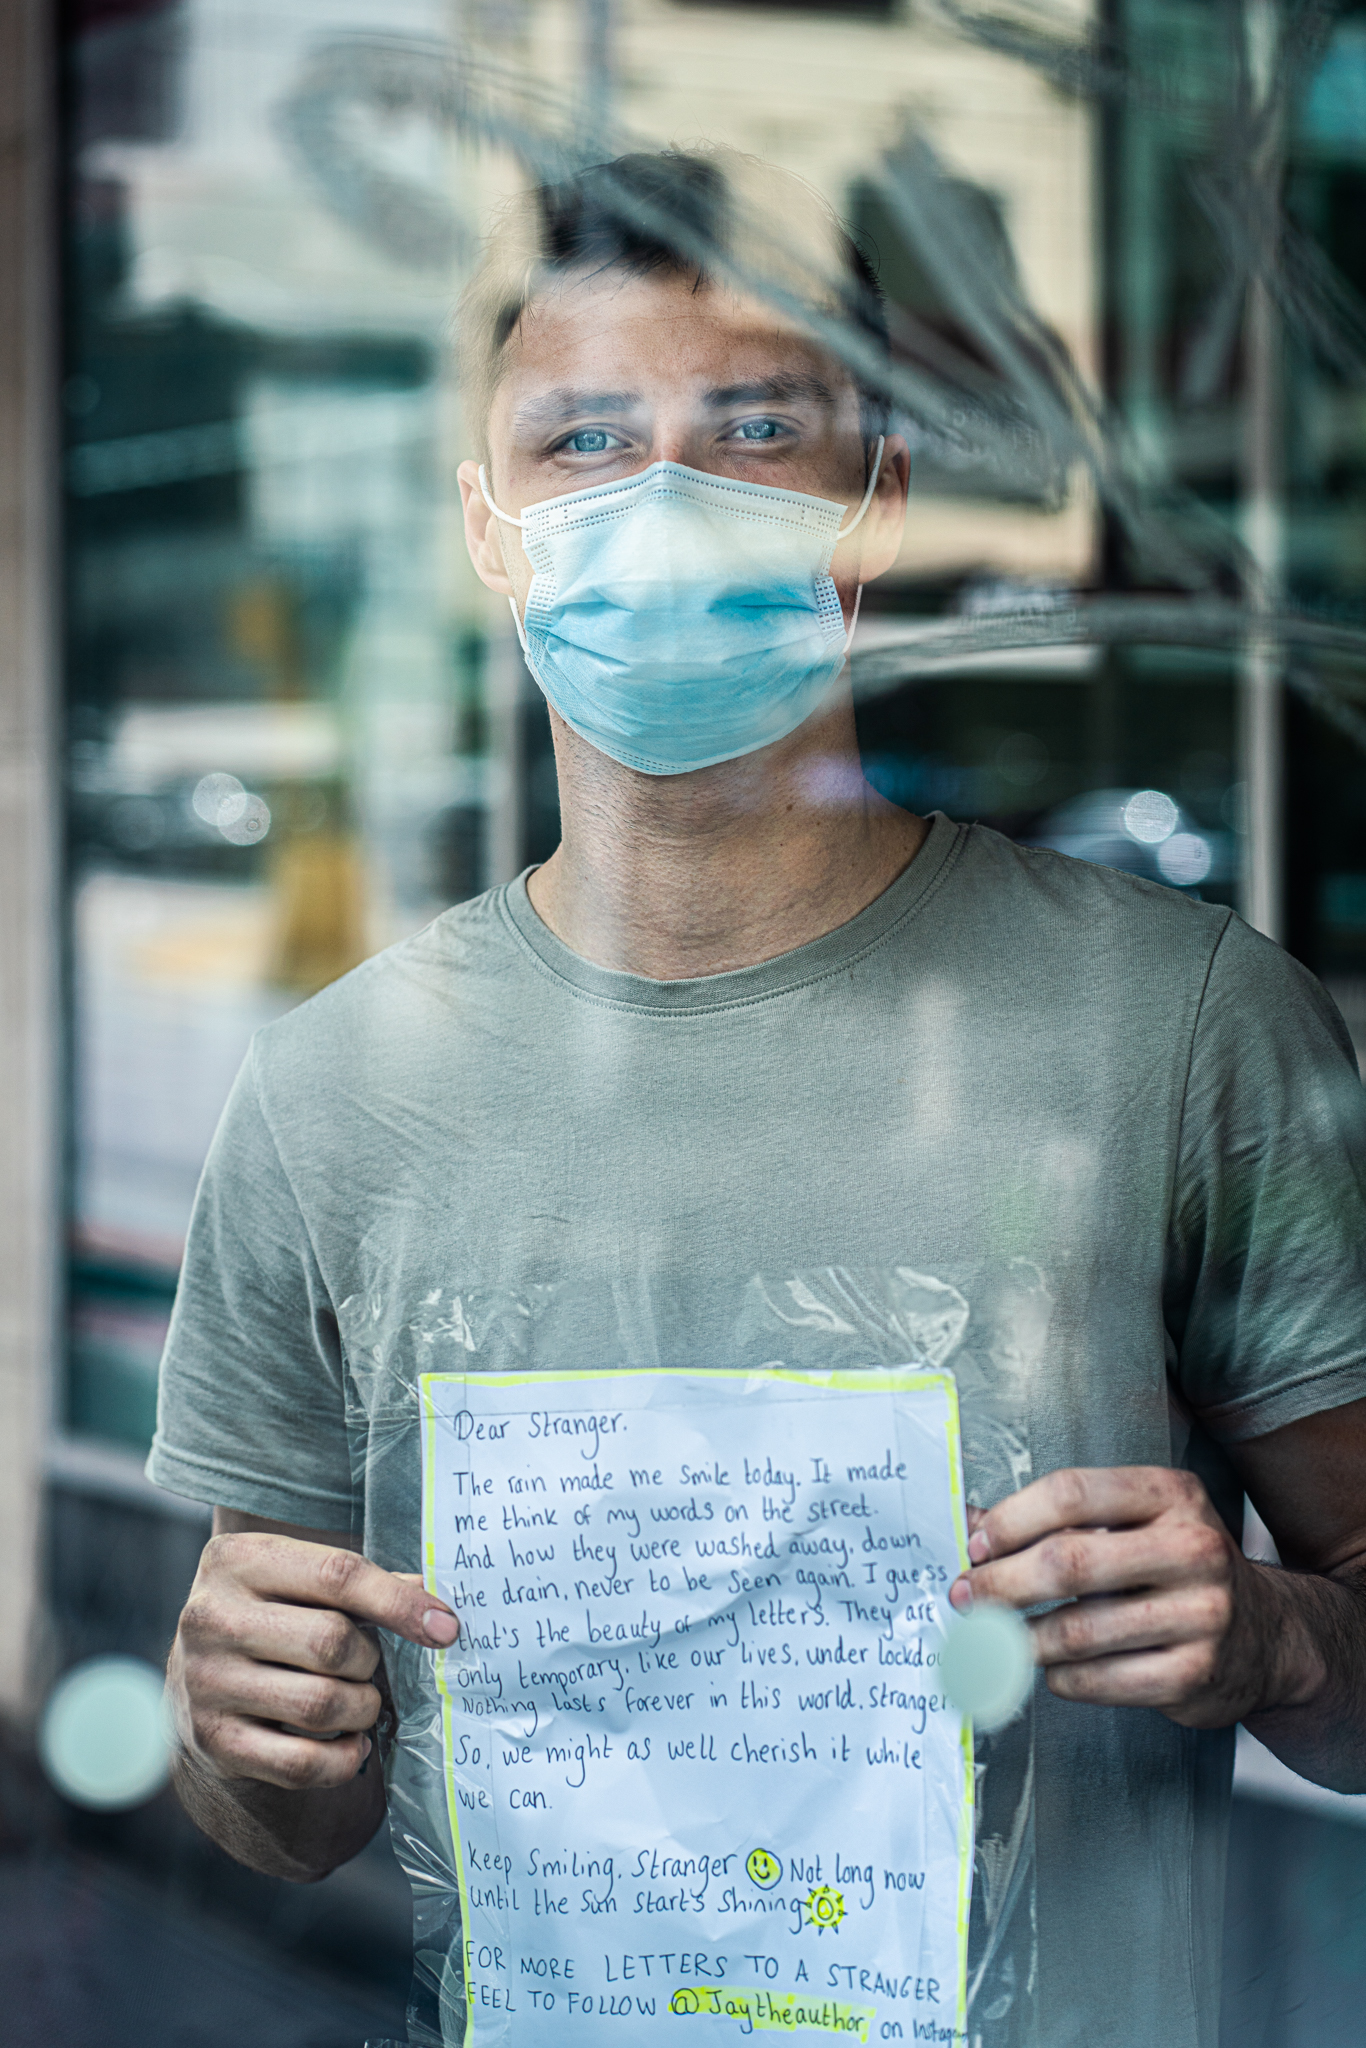 Dear Stranger.
The rain made me smile today. It made
me think of my words on the street.
And how they were washed away, down
the drain, never to be seen again. I guess
that's the beauty of my letters. They are
only temporary, like our lives, under
Nothing lasts forever in this world. Stranger
So, we might as well cherish it while
we can.
Keep Smiling. Stranger Not long now
until the Sun starts Shining
FOR MORE LETTERS TO A STRANGER
FEEL TO FOLLOW @Jaytheauthor on